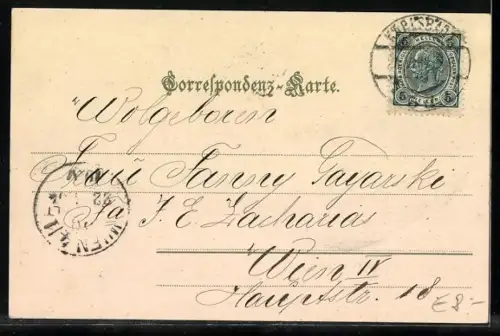 KARLSBAD
5 5
Correspondenz-Karte.
Wolgeboren
Frau Fanny Gayarski
Fa J. E. Zacharias
Wien IV
Hauptstr. 18
WIEN 4/1
22
€8.-